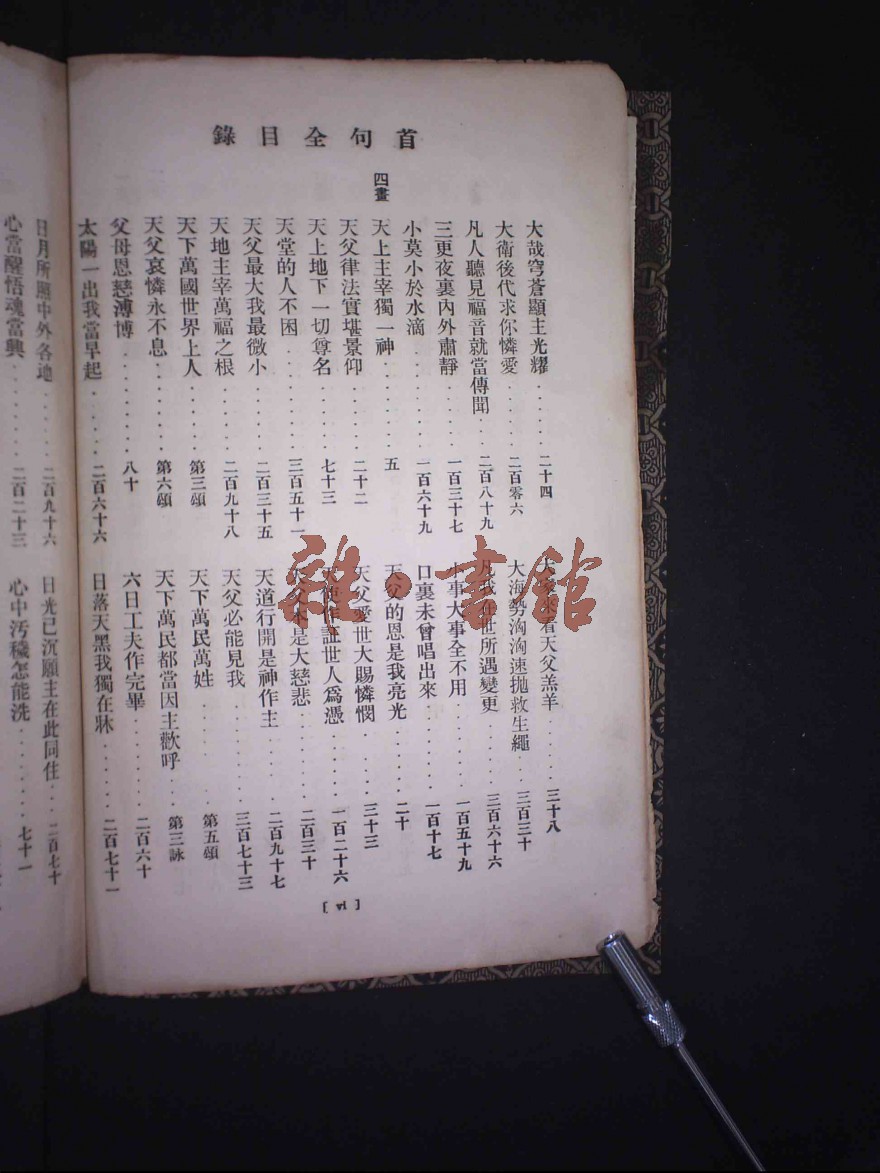 首句全目錄
大哉穹蒼顯主光耀......二十四
大衛後代求你憐愛......二百零六
凡人聽見福音就當傳聞..二百八十九
三更夜裏內外肅靜......一百三十七
小莫小於水滴........一百六十九
四畫
天上主宰獨一神.......五
天父律法實堪景仰......二十二
天上地下一切尊名......七十三
天堂的人不困........三百五十一
天父最大我最微小......二百三十五
天地主宰萬福之根......二百九十八
天下萬國世界上人......第三頌
天父哀憐永不息.......第六頌
父母恩慈溥博........八十
太陽一出我當早起......二百六十六
看天父羔羊....三十八
大海勢洶洶速拋救生繩...三百三十
世所遇變更....三百六十六
小事大事全不用.......一百五十九
口裏未曾唱出來.......一百十七
天父的恩是我亮光......二十
天父愛世大賜憐憫......三十三
天使作証世人爲憑......一百二十六
天父本是大慈悲.......二百三十
天道行開是神作主......二百九十七
天父必能見我........三百七十三
天下萬民萬姓........第五頌
天下萬民都當因主歡呼....第三詠
六日工夫作完畢.......二百六十
日落天黑我獨在牀......二百七十一
[ vi ]
日月所照中外各地......二百九十六
心當醒悟魂當興.......二百二十三
日光已沉願主在此同住...二百七十
心中汚穢怎能洗.......七十一
雜·書館